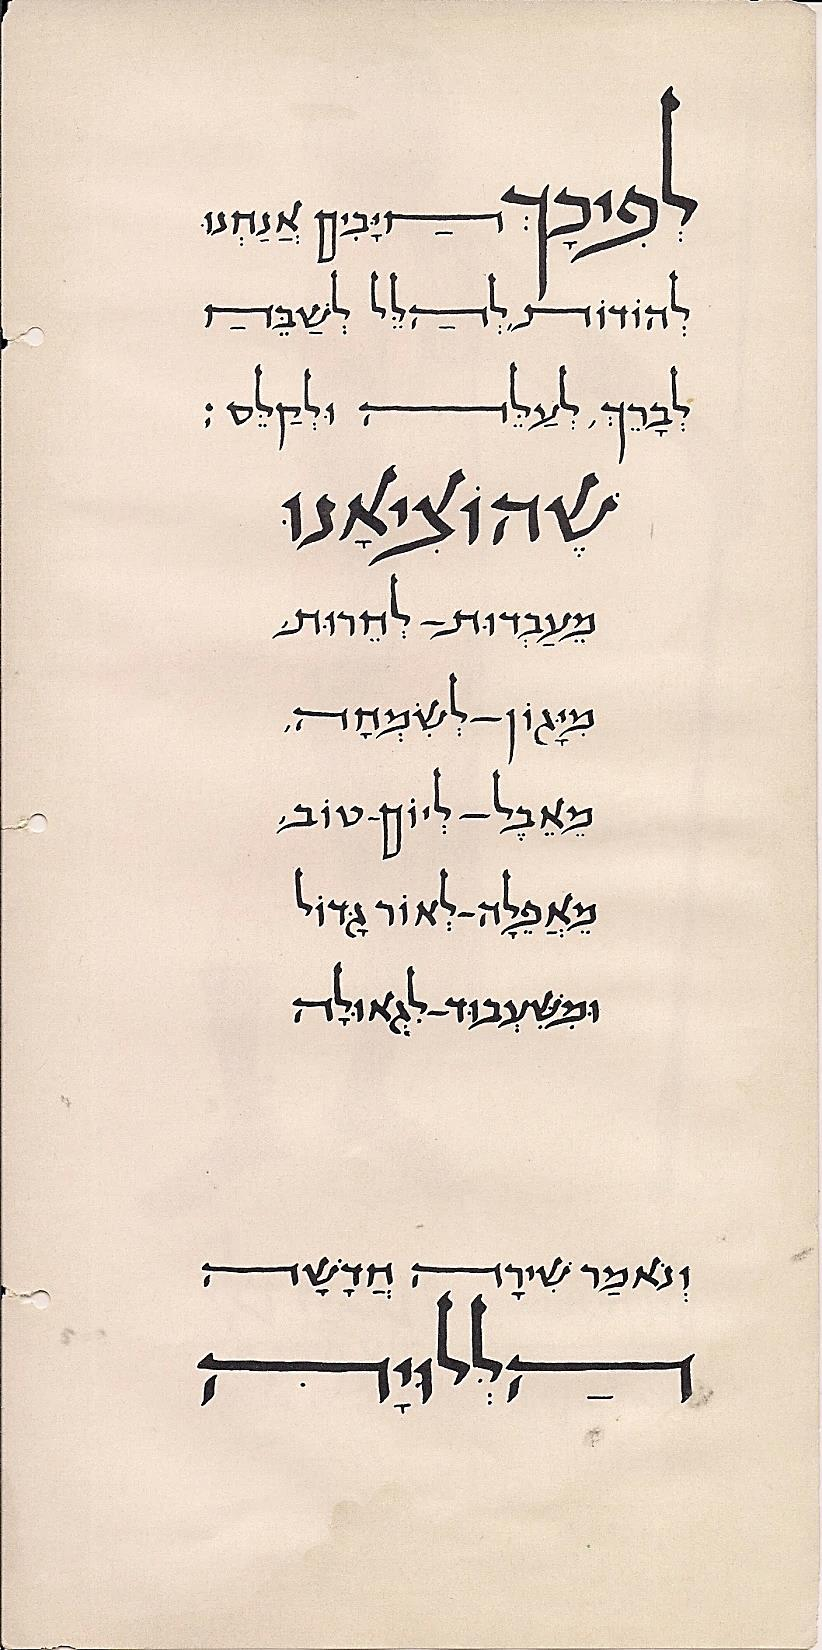 לְפִיכָךְ חַיָּבִים אֲנַחְנוּ
לְהוֹדוֹת, לְהַלֵּל לְשַׁבֵּחַ
לְבָרֵךְ, לְעַלֵּה וּלְקַלֵּס :
שֶׁהוֹצִיאָנוּ
מֵעַבְדוּת - לְחֵרוּת,
מִיָּגוֹן - לְשִׂמְחָה,
מֵאֵבֶל - לְיוֹם-טוֹב,
מֵאֲפֵלָה - לְאוֹר גָּדוֹל
וּמִשִּׁעְבּוּד - לִגְאוּלָּה
וְנֹאמַר שִׁירָה חֲדָשָׁה
הַלְלוּיָהּ